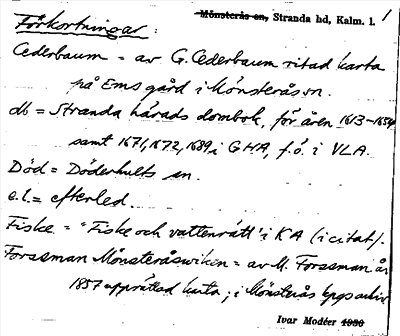 Mönsterås sn, Stranda hd, Kalm. l. 1
Förkortningar:
Cederbaum = av G. Cederbaum ritad karta
på Ems gård i Mönsterås sn.
db = Stranda härads dombok, för åren 1613-1654
samt 1671, 1672, 1689 i GHA, f.ö. i VLA.
Död = Döderhults sn.
e.l. = efterled.
Fiske = "Fiske och vattenrätt" i KA (i citat).
Forssman Mönsteråsviken = av M. Forssman år
1857 upprättad karta; i Mönsterås kpgs arkiv
Ivar Modéer 1930